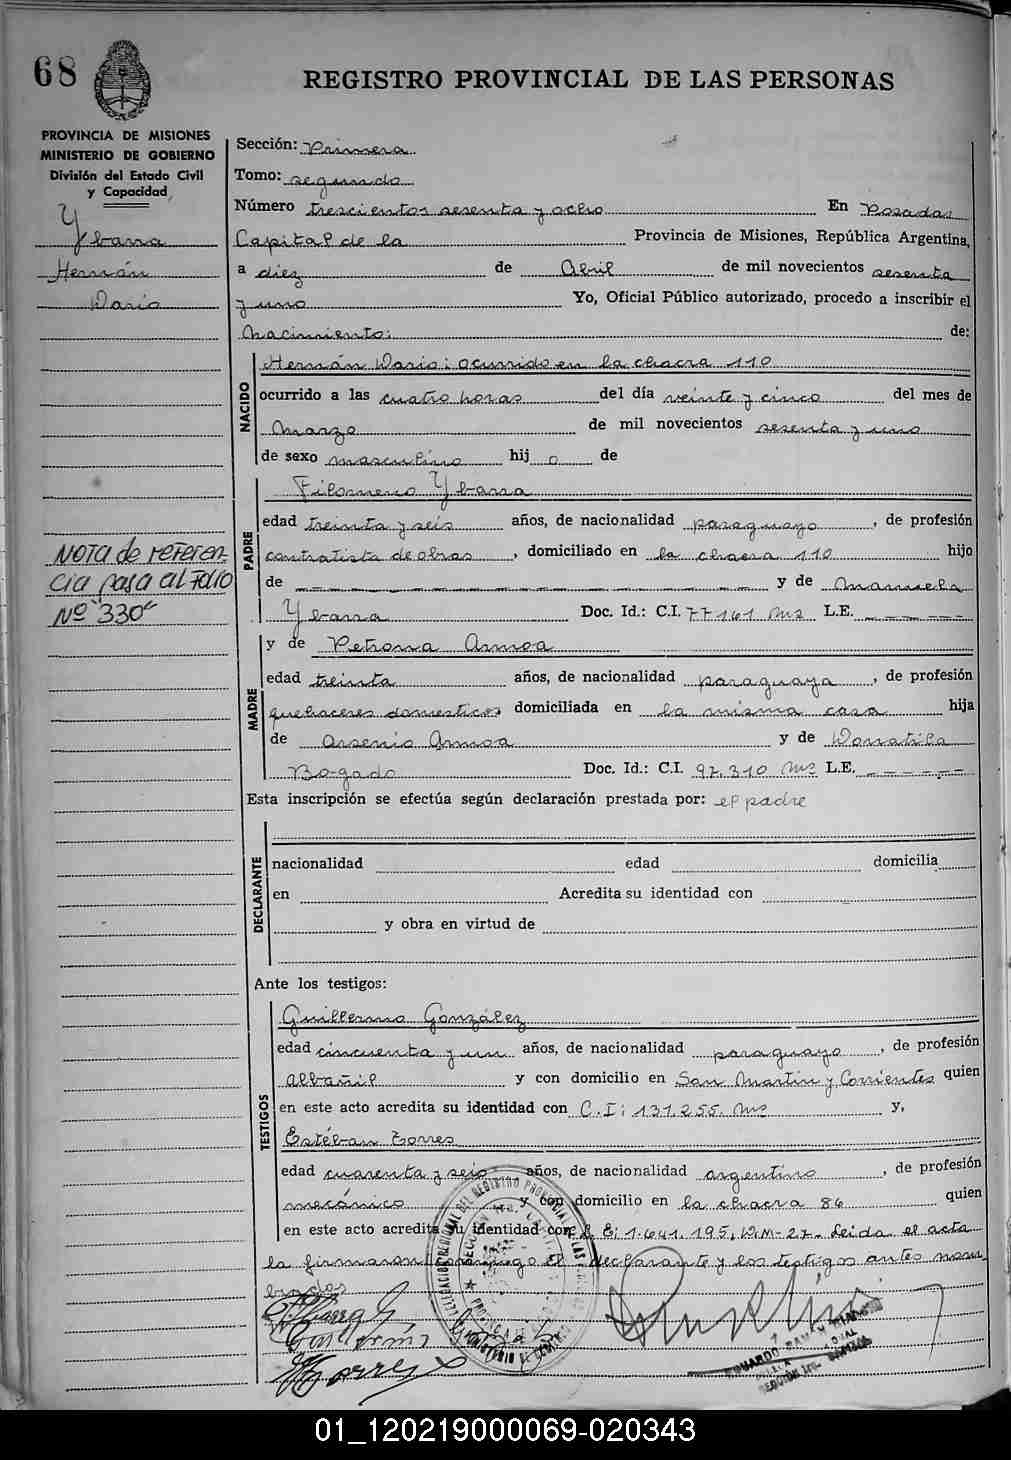 68
REGISTRO PROVINCIAL DE LAS PERSONAS
PROVINCIA DE MISIONES
MINISTERIO DE GOBIERNO
División del Estado Civil
y Capacidad
Ybarra
Hernán
Dario
Nota de referen-
cia pasa al Folio
Nº "330"
Sección: Primera
Tomo: segundo
Número trescientos sesenta y ocho En Posadas
Capital de la Provincia de Misiones, República Argentina,
a diez de Abril de mil novecientos sesenta
y uno Yo, Oficial Público autorizado, procedo a inscribir el
Nacimiento: de:
NACIDO
Hernán Dario: ocurrido en la chacra 110
ocurrido a las cuatro horas del día veinte y cinco del mes de
Marzo de mil novecientos sesenta y uno
de sexo masculino hijo de
PADRE
Filomeno Ybarra
edad treinta y seis años, de nacionalidad paraguayo, de profesión
contratista de obras, domiciliado en la chacra 110 hijo
de y de Manuela
Ybarra Doc. Id.: C.I. 77161 Mns L.E.
y de Petrona Armoa
MADRE
edad treinta años, de nacionalidad paraguaya, de profesión
quehaceres domesticos domiciliada en la misma casa hija
de Arsenio Armoa y de Donatila
Bogado Doc. Id.: C.I. 97.310 Mns L.E.
Esta inscripción se efectúa según declaración prestada por: el padre
DECLARANTE
nacionalidad edad domicilia
en Acredita su identidad con
y obra en virtud de
Ante los testigos:
TESTIGOS
Guillermo González
edad cincuenta y un años, de nacionalidad paraguayo, de profesión
Albañil y con domicilio en San Martin y Corrientes quien
en este acto acredita su identidad con C.I: 131.255. Mns y,
Estéban Torres
edad cuarenta y seis años, de nacionalidad argentino, de profesión
mecánico y con domicilio en la chacra 86 quien
en este acto acredita su identidad con L.E: 1.641.195, D.M-27- Leida el acta
la firmaron conmigo el declarante y los testigos antes nom
brados
Torres
01_120219000069-020343